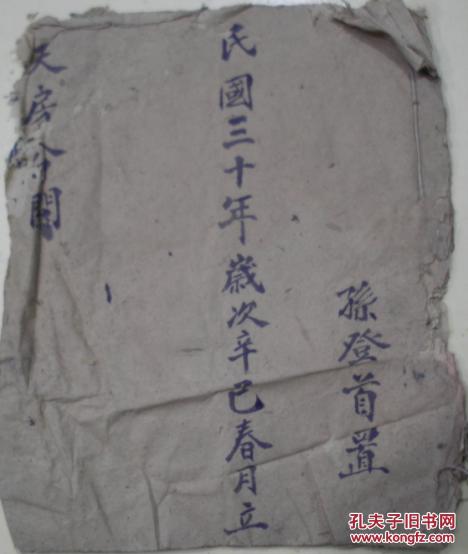 孫登首置
民國三十年嵗次辛巳春月立
天房分関
孔夫子旧书网
www.kongfz.com